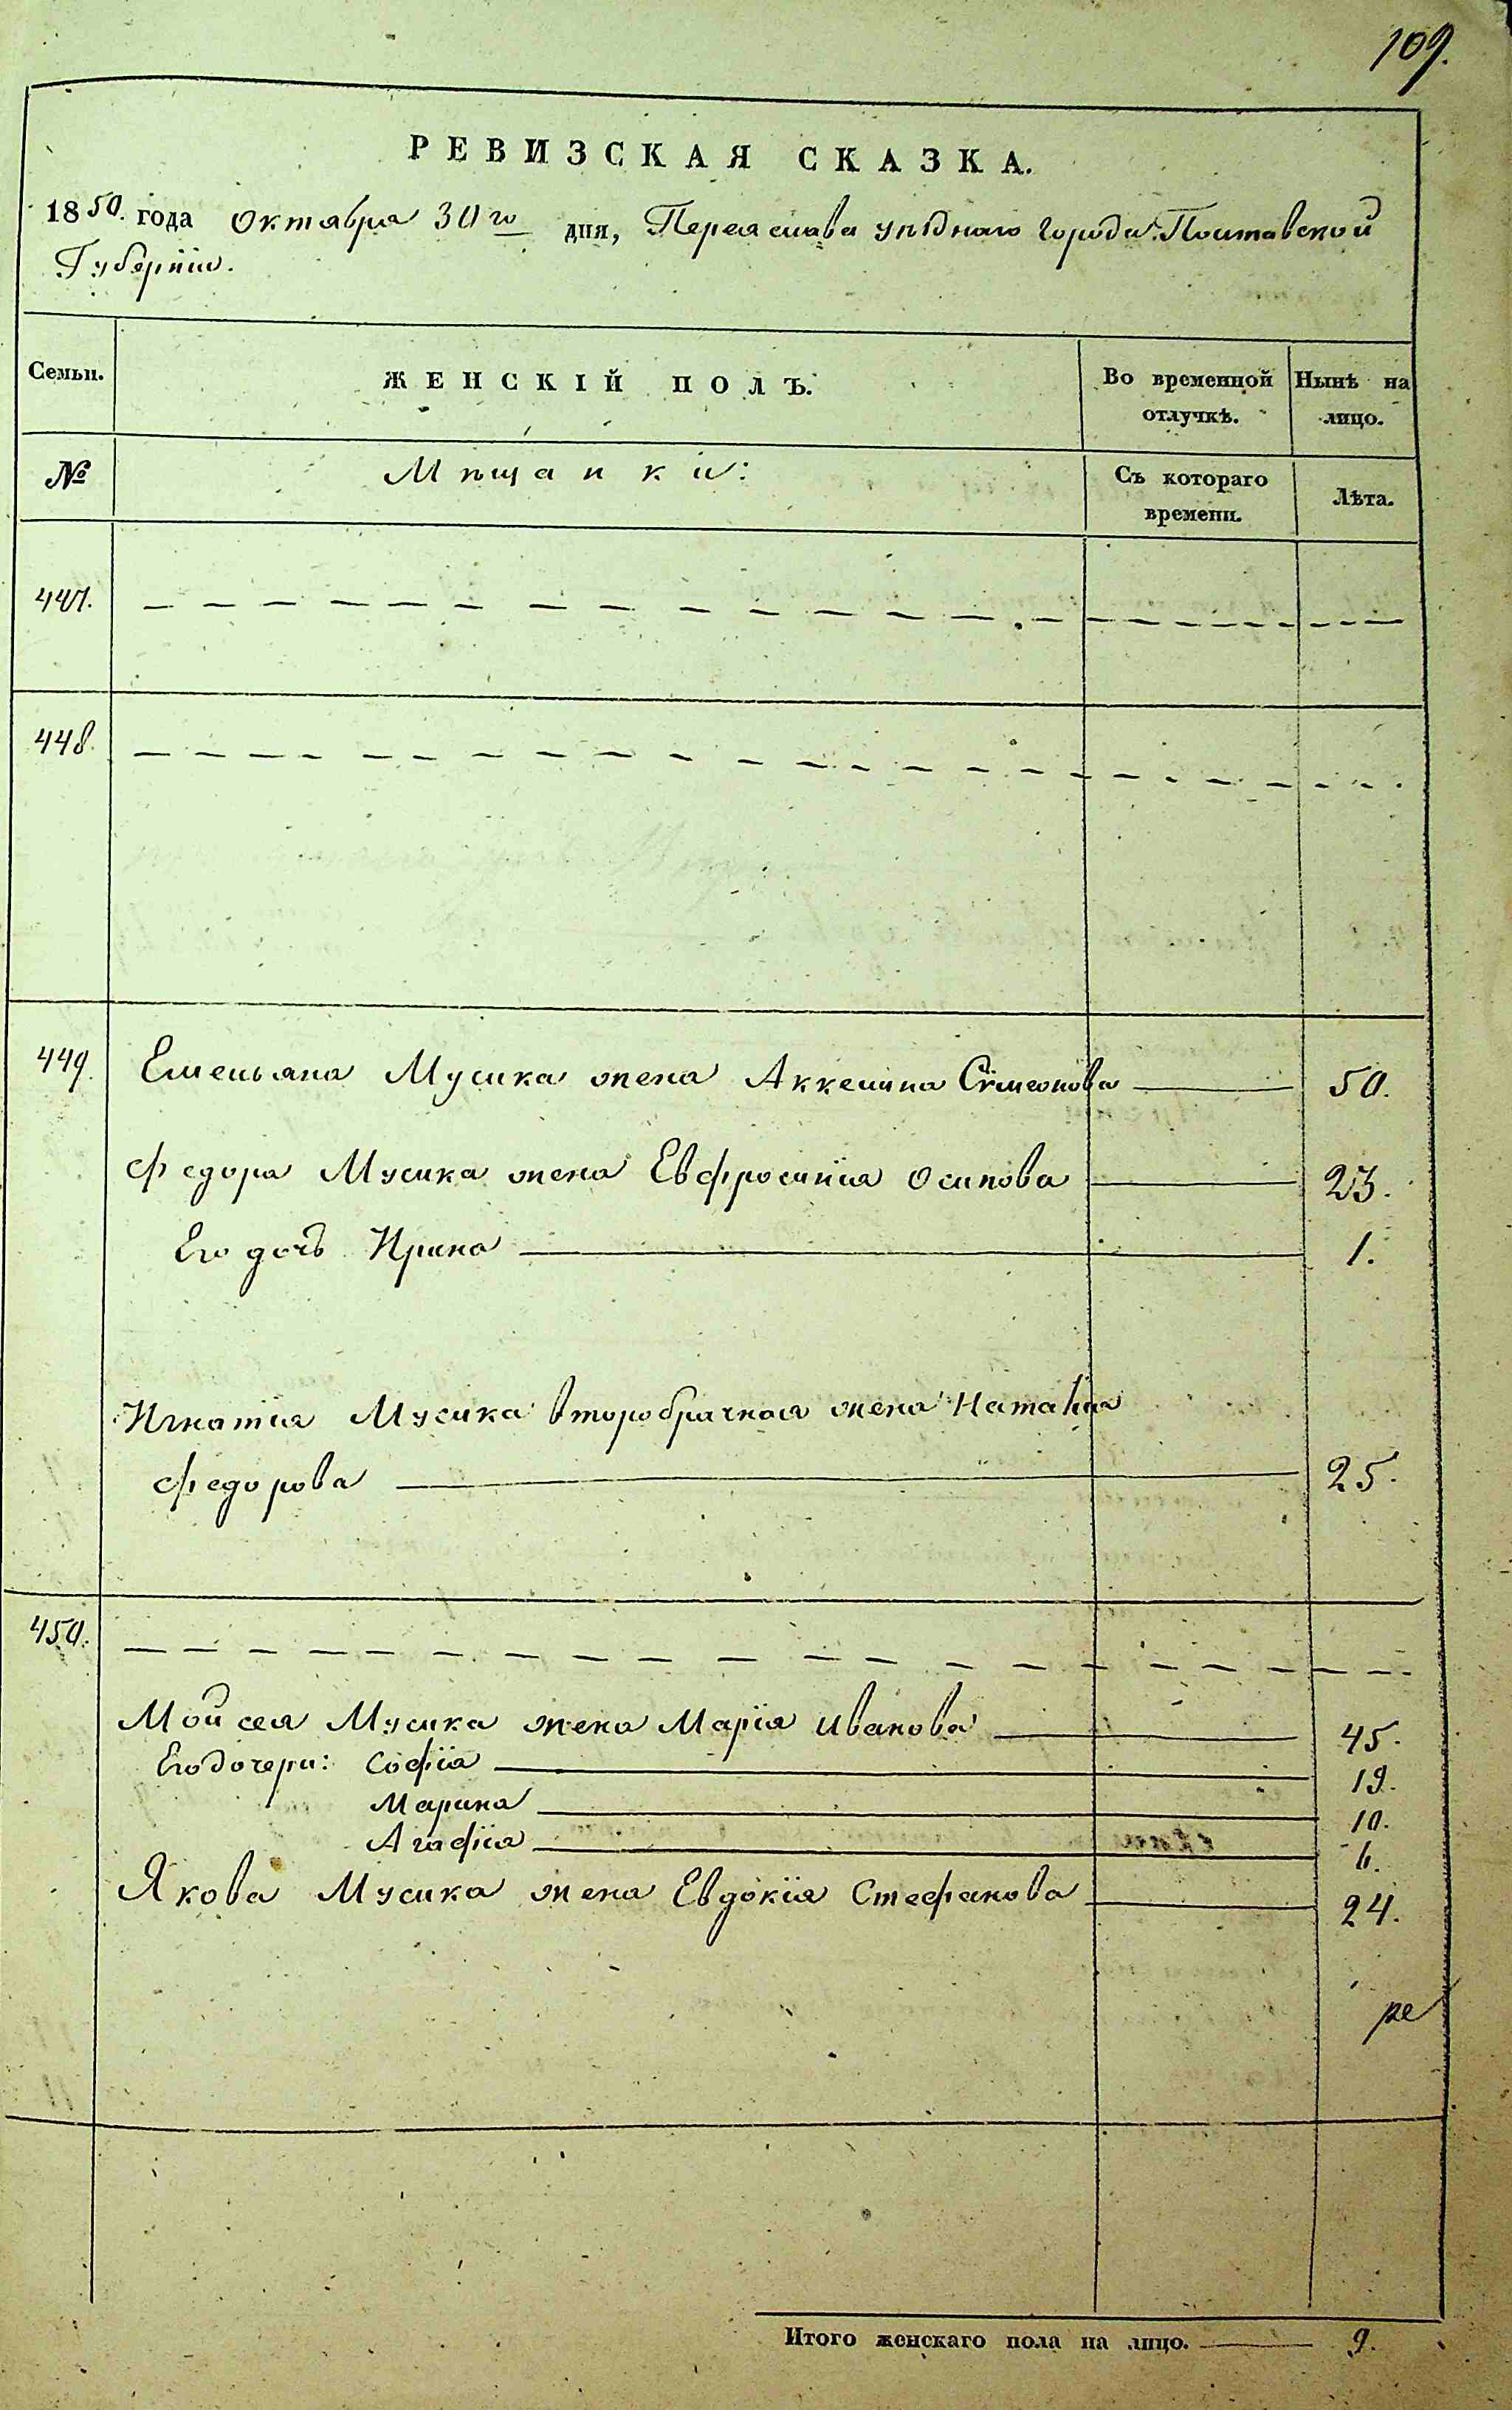 109.
РЕВИЗСКАЯ СКАЗКА.
1850. года Октября 30го дня, Переяслава уѣзднаго города Полтавской
Губерніи.
Семьи. ЖЕНСКІЙ ПОЛЪ. Во временной отлучкѣ. Нынѣ на лицо.
№ Мѣщанки: Съ котораго времени. Лѣта.
447.
448.
449. Емельяна Мусика жена Аккелина Сѵмеонова 50.
Федора Мусика жена Евфросинія Осипова 23.
Его дочь Ирина 1.
Игнатія Мусика второбрачная жена Наталія
Федорова 25.
450.
Мойсея Мусика жена Марія Иванова 45.
Его дочери: Софія 19.
Марина 10.
Агафія 6.
Якова Мусика жена Евдокія Стефанова 24.
Итого женскаго пола на лицо. 9.